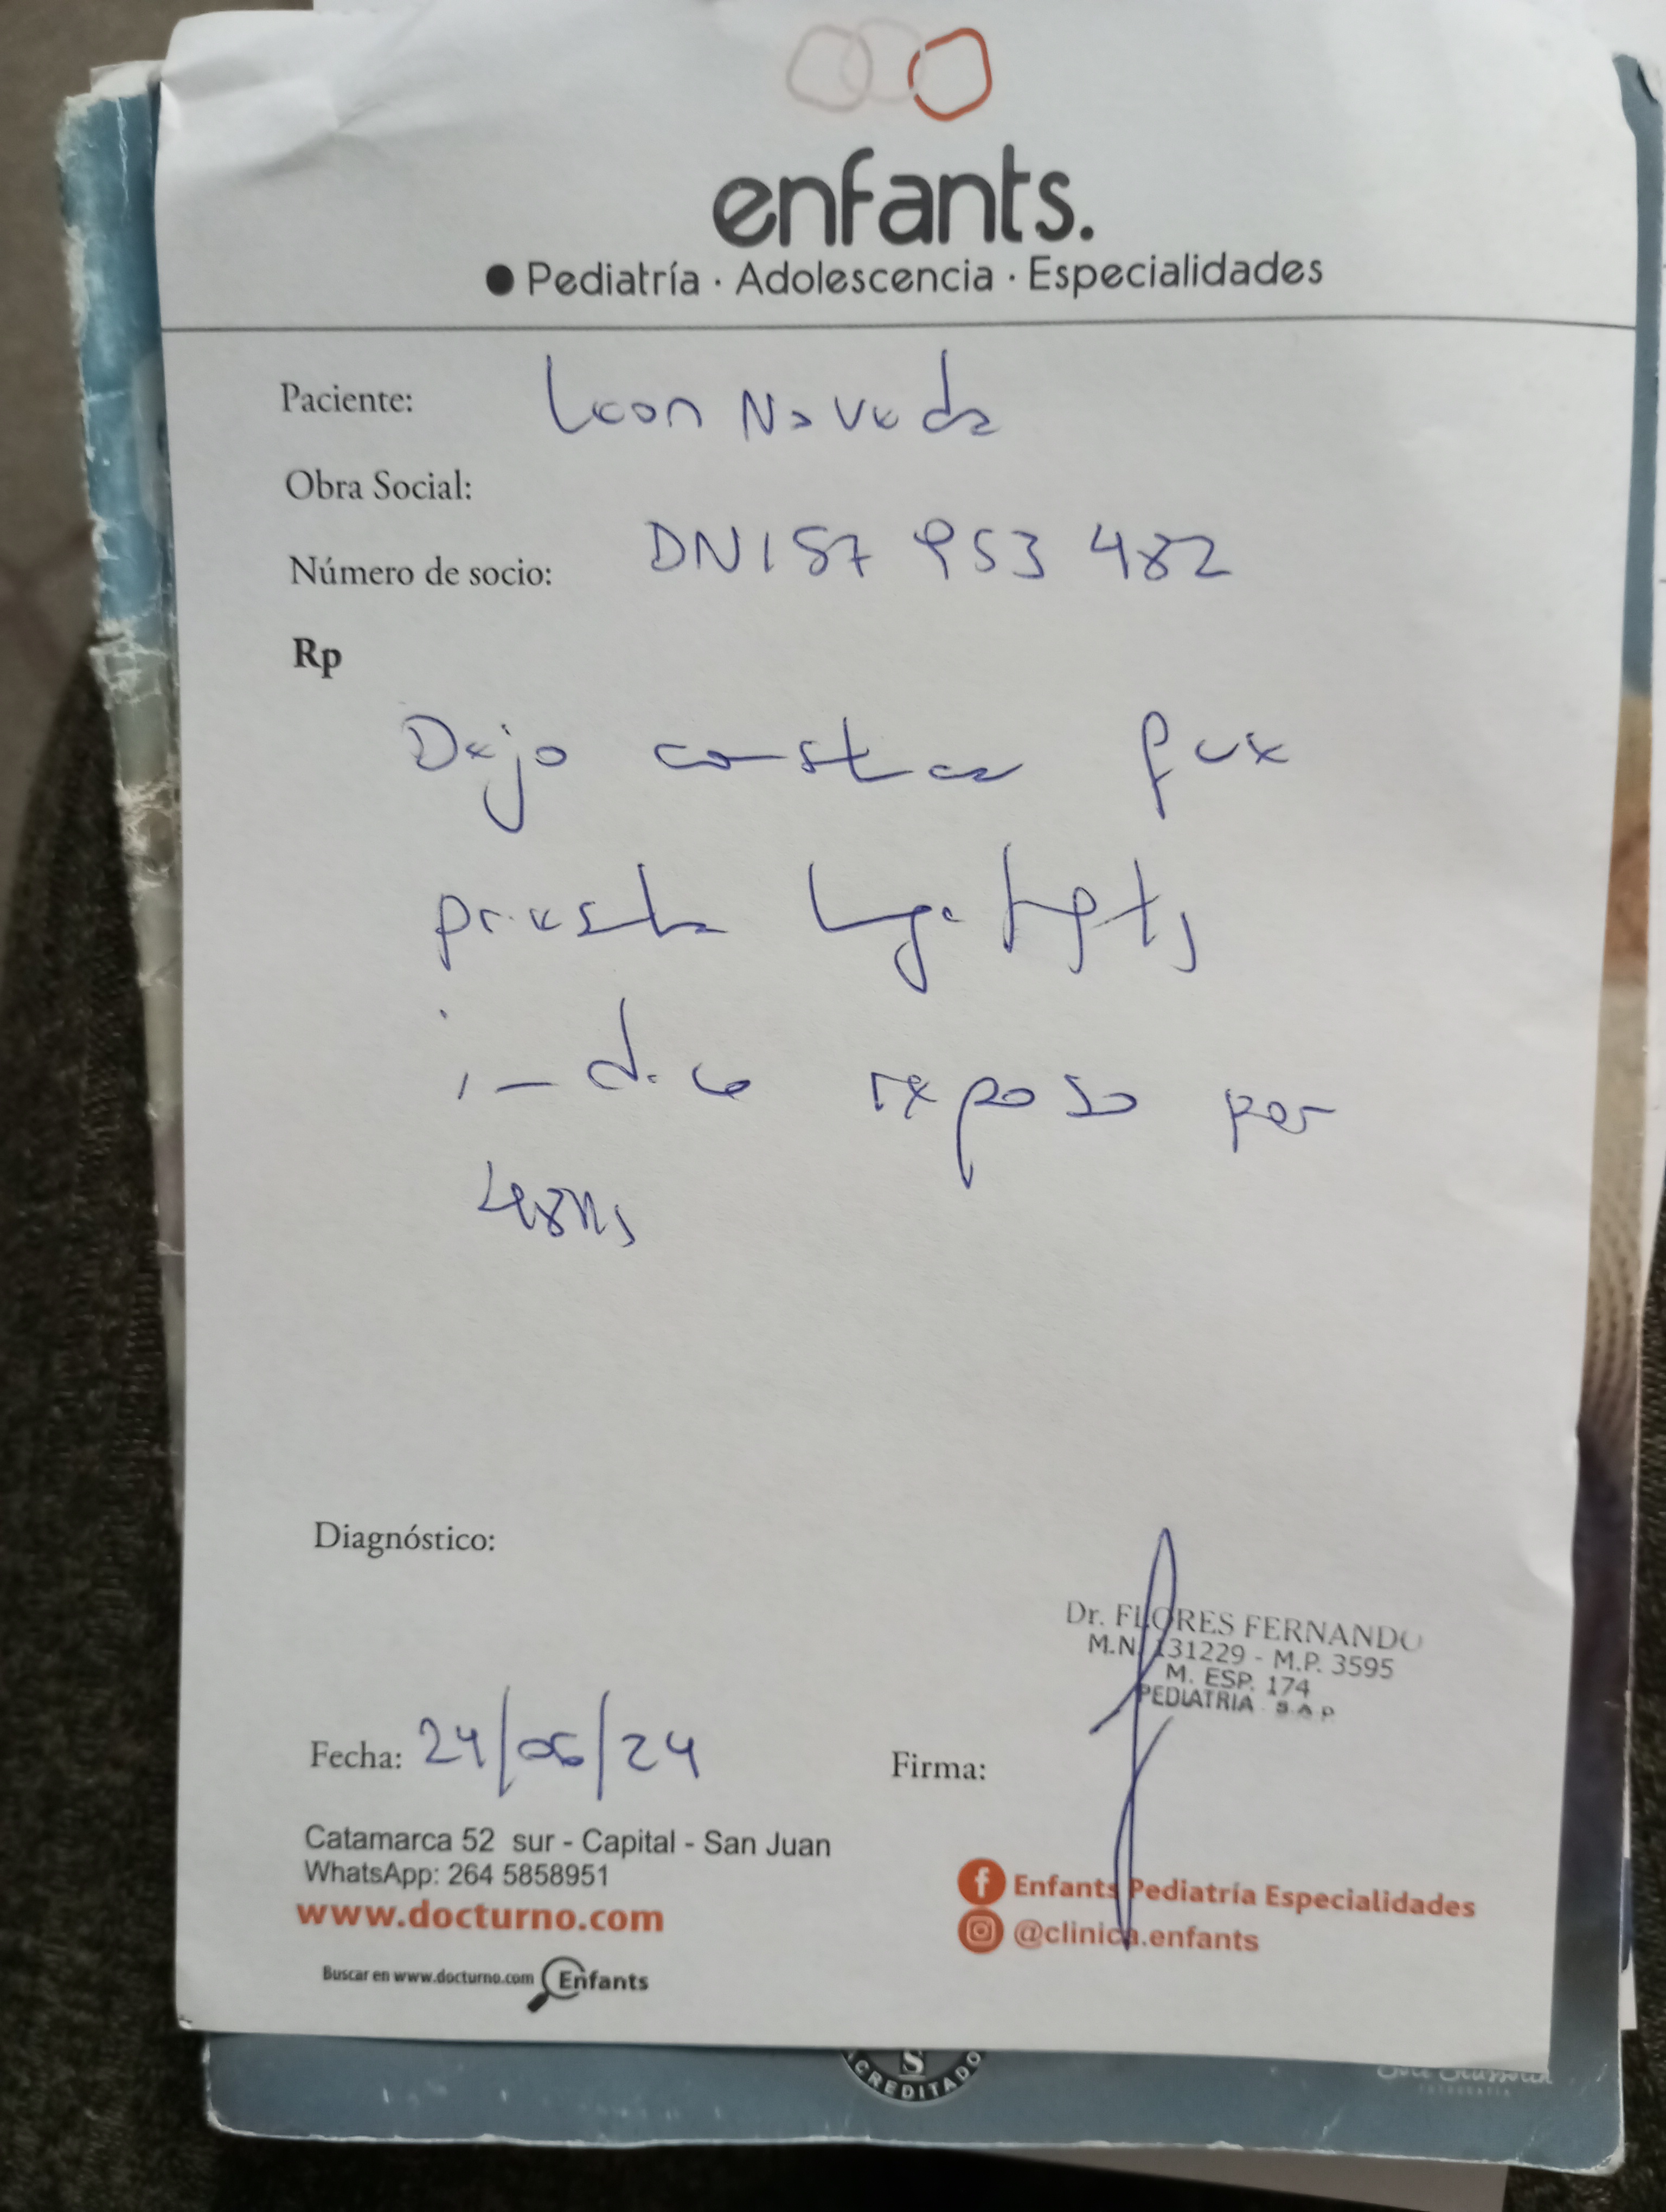 enfants.
Pediatría · Adolescencia · Especialidades
Paciente: Leon Naveda
Obra Social:
Número de socio: DNI 57 953 482
Rp
Dejo constar que
presenta
indico reposo por
48hs
Diagnóstico:
Dr. FLORES FERNANDO
M.N. 131229 - M.P. 3595
M. ESP. 174
PEDIATRIA S.A.P
Fecha: 24/06/24 Firma:
Catamarca 52 sur - Capital - San Juan
WhatsApp: 264 5858951
www.docturno.com
Enfants Pediatría Especialidades
@clinica.enfants
Buscar en www.docturno.com Enfants
S
ACREDITADO